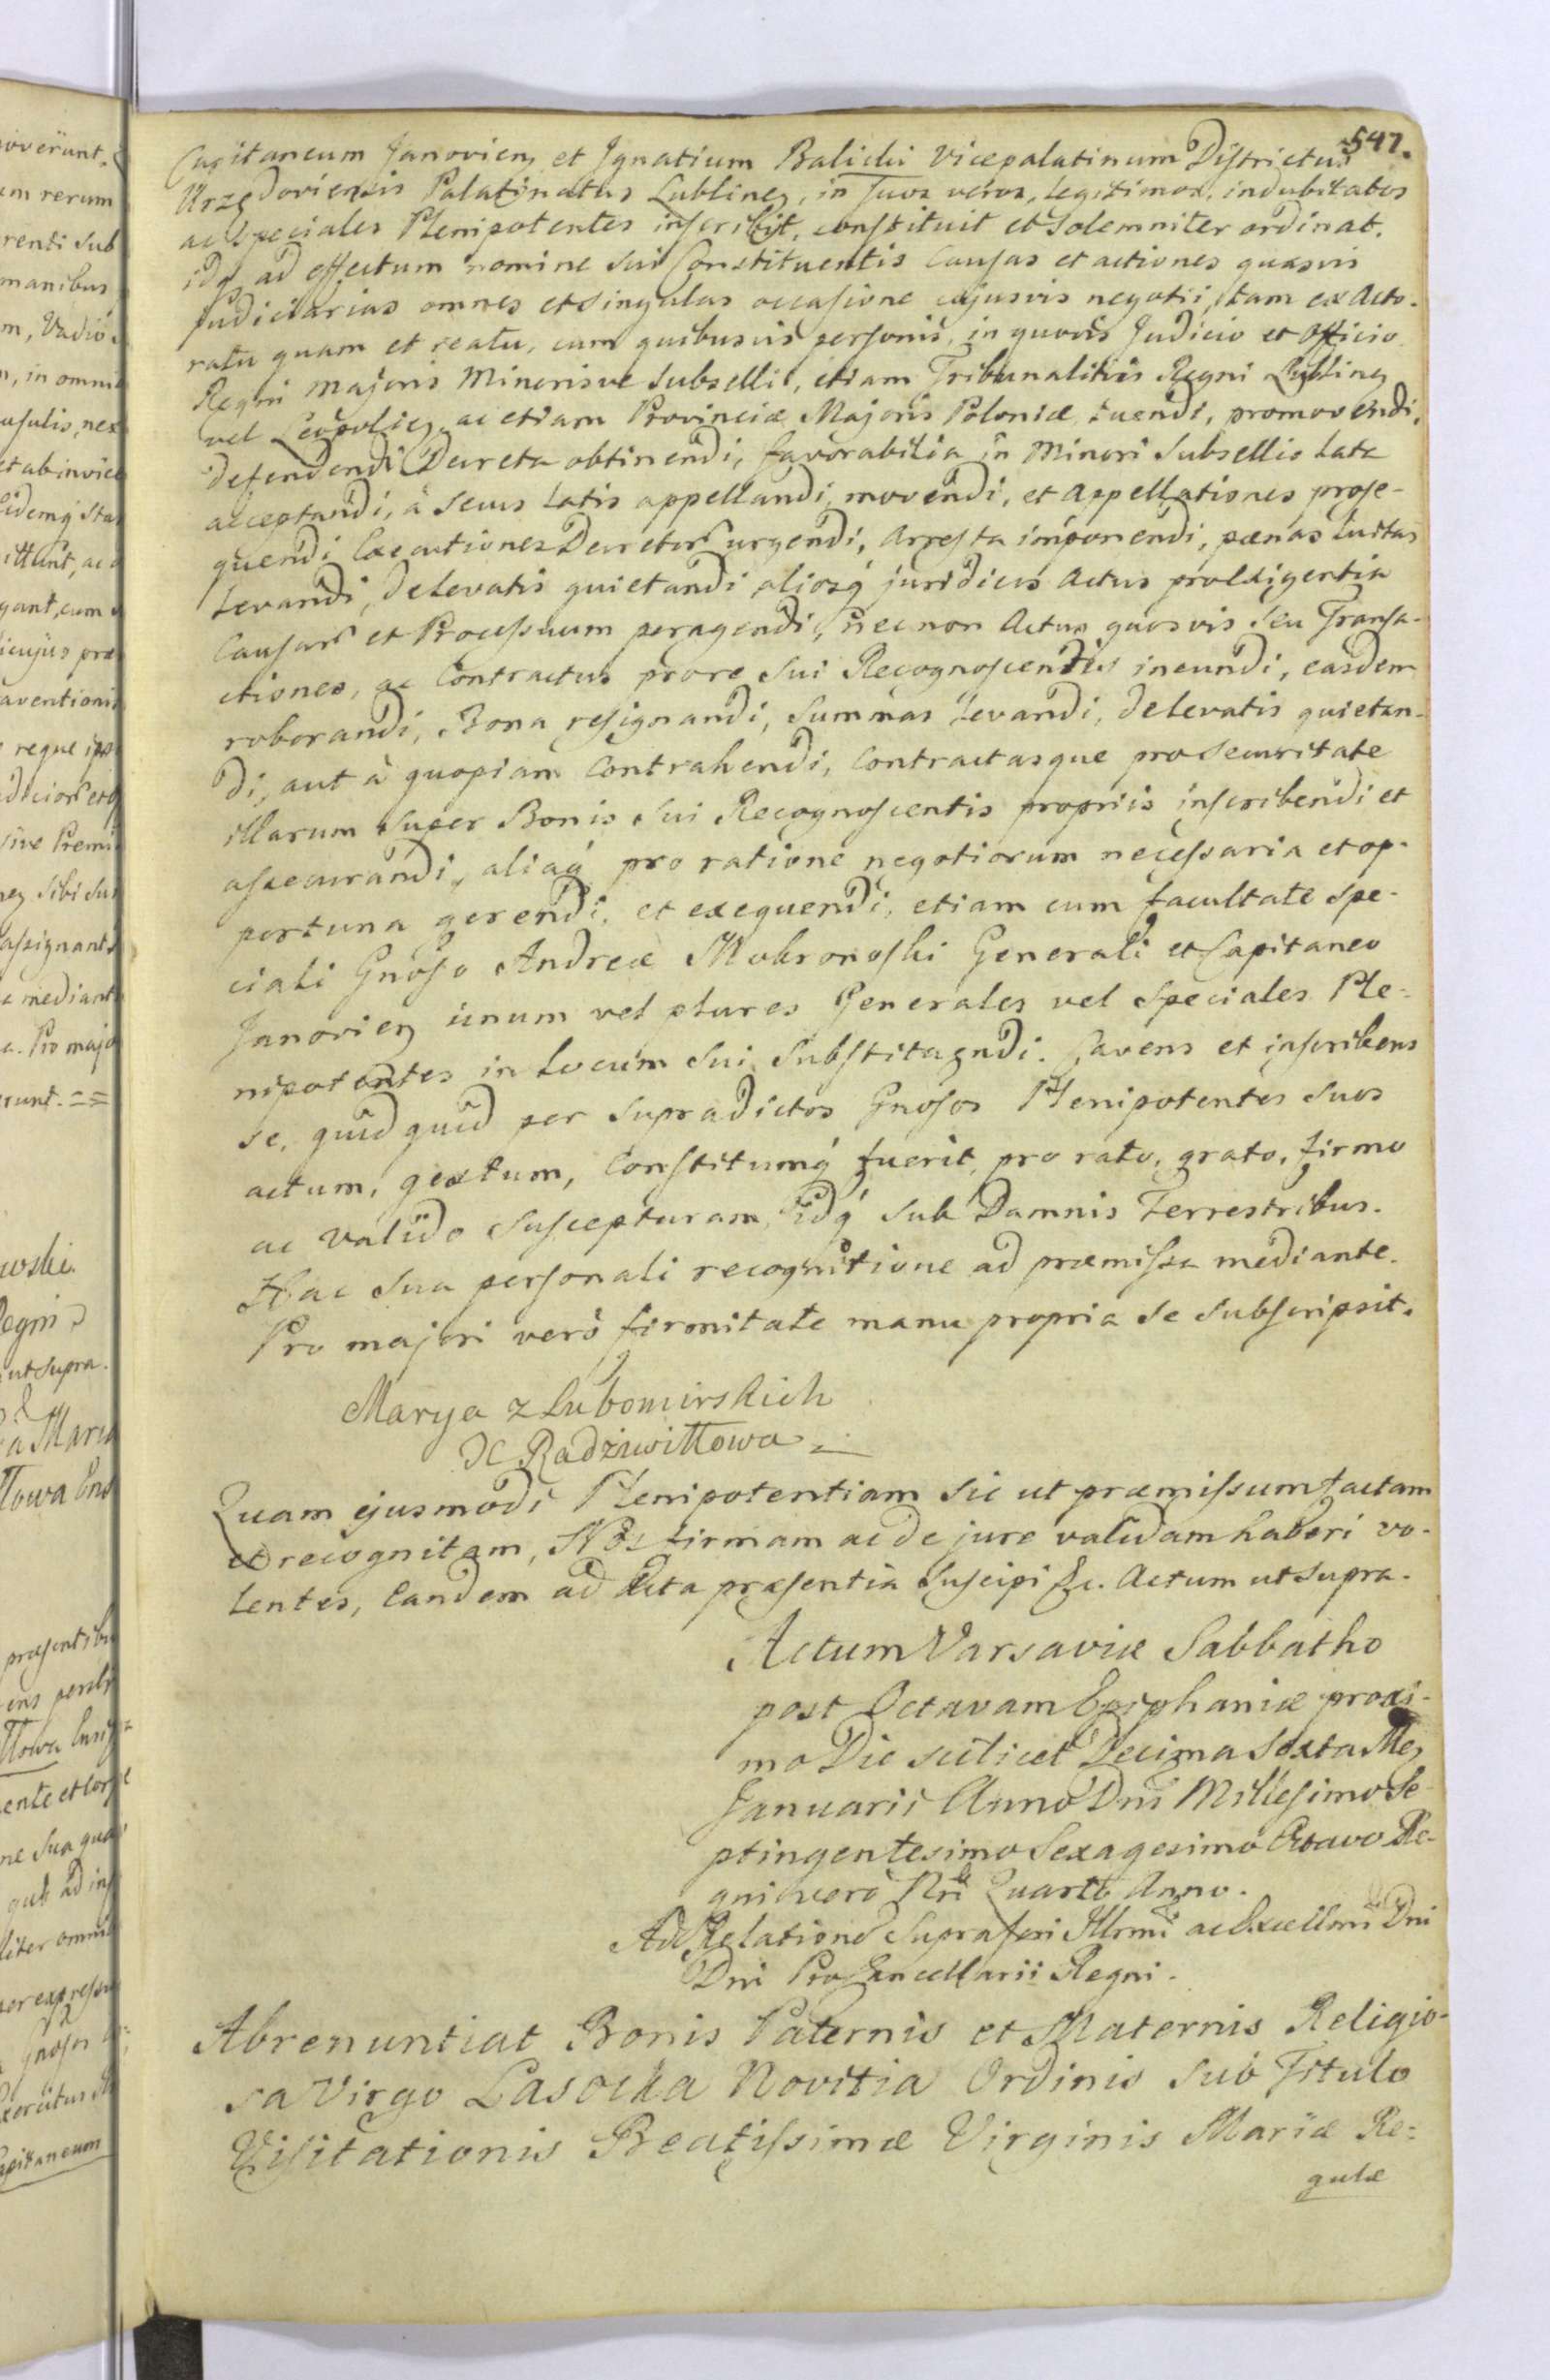 547.
Capitaneum Janovien, et Ignatium Balicki Vicepalatinum Districtus
Urzędoviensis Palatinatus Lublinen, in suos veros, legitimos, indubitatos
ac speciales Plenipotentes inscribit, constituit et solemniter ordinat.
idq, ad effectum nomine sui Constituentis Causas et actiones quasvis
judiciarias omnes et singulas occasione cujusvis negotii, tam ex Acto-
ratu quam et reatu, cum quibusvis personis, in quovis Judicio et Officio
Regni Majoris Minorisve Subsellii, etiam Tribunalitiis Regni Lublinen
vel Leopolien, ac etiam Provinciæ Majoris Poloniæ tuendi, promovendi,
defendendi Decreta obtinendi, favorabilia in Minori Subsellio lata
acceptandi, à secus latis appellandi, movendi, et Appellationes prose-
quendi Executiones Decretor urgendi, Arresta imponendi, pænas luitas
levandi, de levatis quietandi aliosq juridicos Actus pro exigentia
Causar et Processuum peragendi, necnon Actus quosvis seu Transa-
ctiones, ac Contractus pro re sui Recognoscentis ineundi, easdem
roborandi, Bona resignandi, Summas levandi, de levatis quietan-
di, aut à quopiam Contrahendi, Contractasque pro securitate
illarum super Bonis sui Recognoscentis propriis inscribendi et
assecurandi, aliaq pro ratione negotiorum necessaria et op-
portuna gerendi, et exequendi, etiam cum facultate spe-
ciali Gnoso Andreæ Mokronoski Generali et Capitaneo
Janovien unum vel plures Generales vel Speciales Ple-
nipotentes in locum sui substituendi. Cavens et inscribens
se, quid quid per supradictos Gnosos Plenipotentes suos
actum, gestum, Constitumq fuerit, pro rato, grato, firmo
ac valido suscepturam, idq sub Damnis Terrestribus.
Hac sua personali recognitione ad præmissa mediante.
Pro majori verò firmitate manu propria se subscripsit.
Marya z Lubomirskich
X Radziwiłłowa
Quam ejusmodi Plenipotentiam sic ut præmissum factam
et recognitam, Nos firmam ac de jure validam haberi vo-
lentes, Eandem ad Acta præsentia suscipi &c. Actum ut supra.
Actum Varsaviæ Sabbatho
post Octavam Epiphaniæ proxi-
mo Die scilicet Decima Sexta Men
Januarii Anno Dni Millesimo Se-
ptingentesimo Sexagesimo Octavo Re-
gni vero Nri Quarto Anno.
Ad Relatione Suprascri Illrmi ac Excellmi Dni
Dni Pro Cancellarii Regni.
Abrenuntiat Bonis Paternis et Maternis Religio-
sa Virgo Lasocka Novitia Ordinis sub Titulo
Visitationis Beatissimæ Virginis Mariæ Re-
gulæ